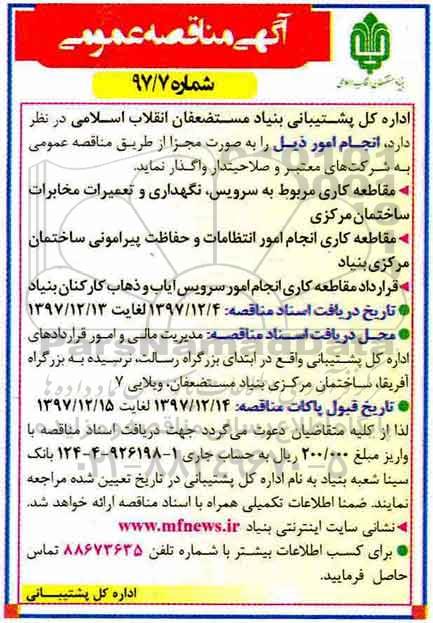 آگهی مناقصه عمومی
بنیاد مستضعفان انقلاب اسلامی
شماره ۹۷/۷
اداره کل پشتیبانی بنیاد مستضعفان انقلاب اسلامی در نظر
دارد، انجام امور ذیل را به صورت مجزا از طریق مناقصه عمومی
به شرکت‌های معتبر و صلاحیتدار واگذار نماید.
مقاطعه کاری مربوط به سرویس، نگهداری و تعمیرات مخابرات
ساختمان مرکزی
مقاطعه کاری انجام امور انتظامات و حفاظت پیرامونی ساختمان
مرکزی بنیاد
قرارداد مقاطعه کاری انجام امور سرویس ایاب و ذهاب کارکنان بنیاد
تاریخ دریافت اسناد مناقصه: ۱۳۹۷/۱۲/۴ لغایت ۱۳۹۷/۱۲/۱۳
محل دریافت اسناد مناقصه: مدیریت مالی و امور قراردادهای
اداره کل پشتیبانی واقع در ابتدای بزرگراه رسالت، نرسیده به بزرگراه
آفریقا، ساختمان مرکزی بنیاد مستضعفان، ویلایی ۷
تاریخ قبول پاکات مناقصه: ۱۳۹۷/۱۲/۱۴ لغایت ۱۳۹۷/۱۲/۱۵
لذا از کلیه متقاضیان دعوت می‌گردد جهت دریافت اسناد مناقصه با
واریز مبلغ ۲۰۰/۰۰۰ ریال به حساب جاری ۱-۹۲۶۱۹۸-۴-۱۲۴ بانک
سینا شعبه بنیاد به نام اداره کل پشتیبانی در تاریخ تعیین شده مراجعه
نمایند. ضمنا اطلاعات تکمیلی همراه با اسناد مناقصه ارائه خواهد شد.
نشانی سایت اینترنتی بنیاد www.mfnews.ir
برای کسب اطلاعات بیشتر با شماره تلفن ۸۸۶۷۳۶۳۵ تماس
حاصل فرمایید.
اداره کل پشتیبانی